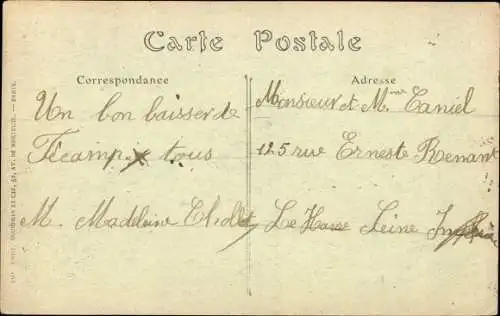 Carte Postale
Correspondance
Adresse
Un bon baiser de
Fécamp à tous
M. Madeleine
Monsieur et Mme Taniel
125 rue Ernest Renant
Le Havre Seine Inférieure